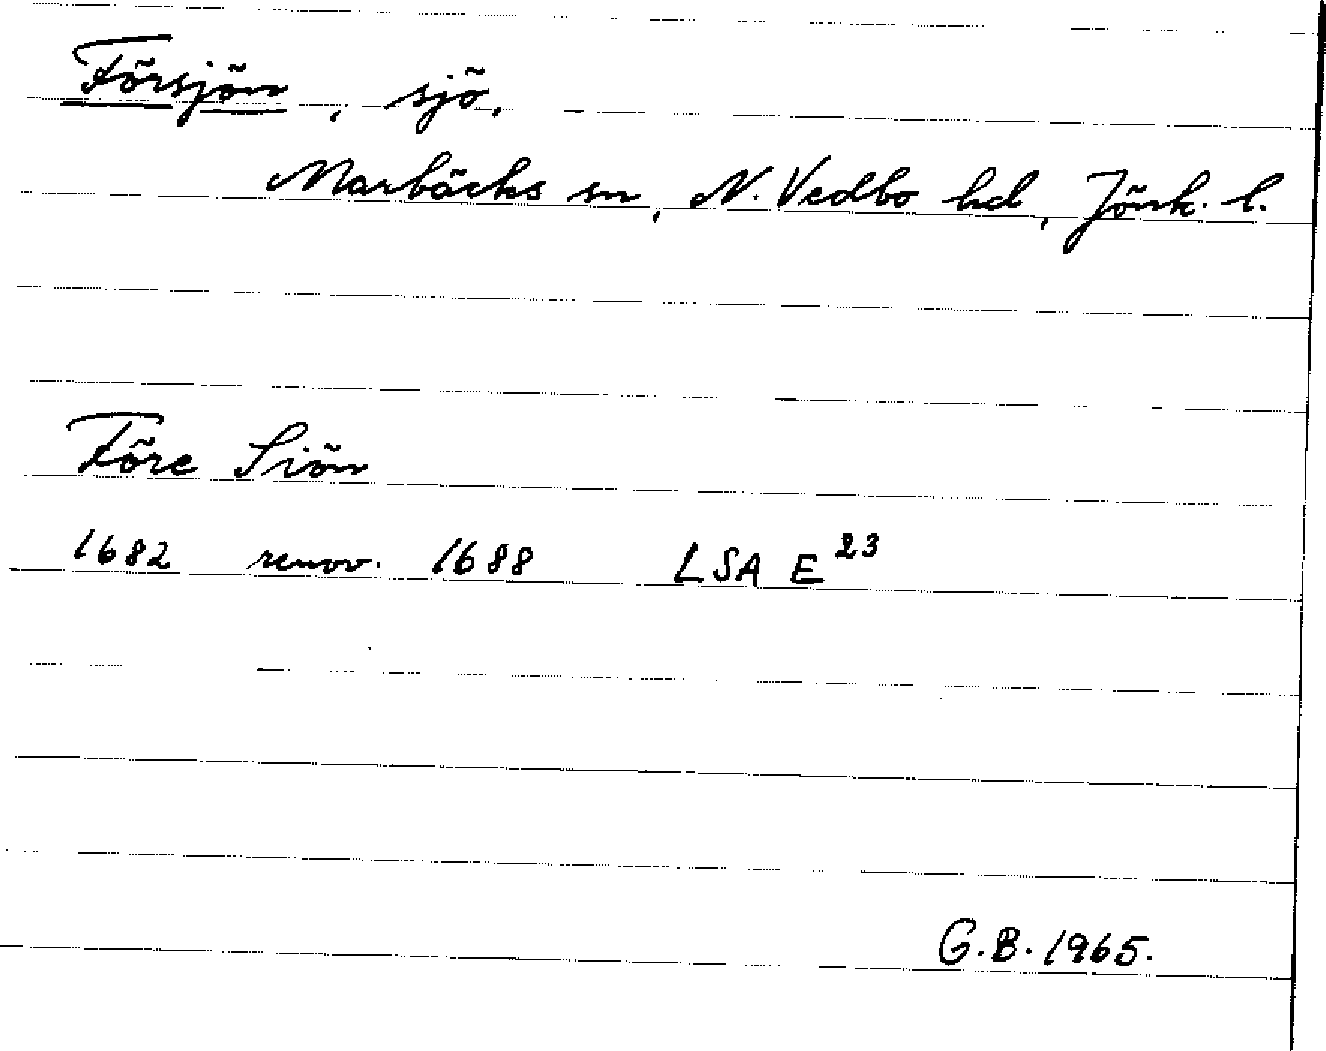 Försjön, sjö.
Marbäcks sn, N. Vedbo hd, Jönk. l.
Före Siön
1682 renov. 1688 LSA E 23
G.B. 1965.